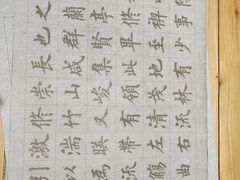 之蘭亭脩稧事
也群賢畢至少
長咸集此地有
崇山峻領茂林
脩竹又有清流
激湍暎帶左右
引以為流觴曲